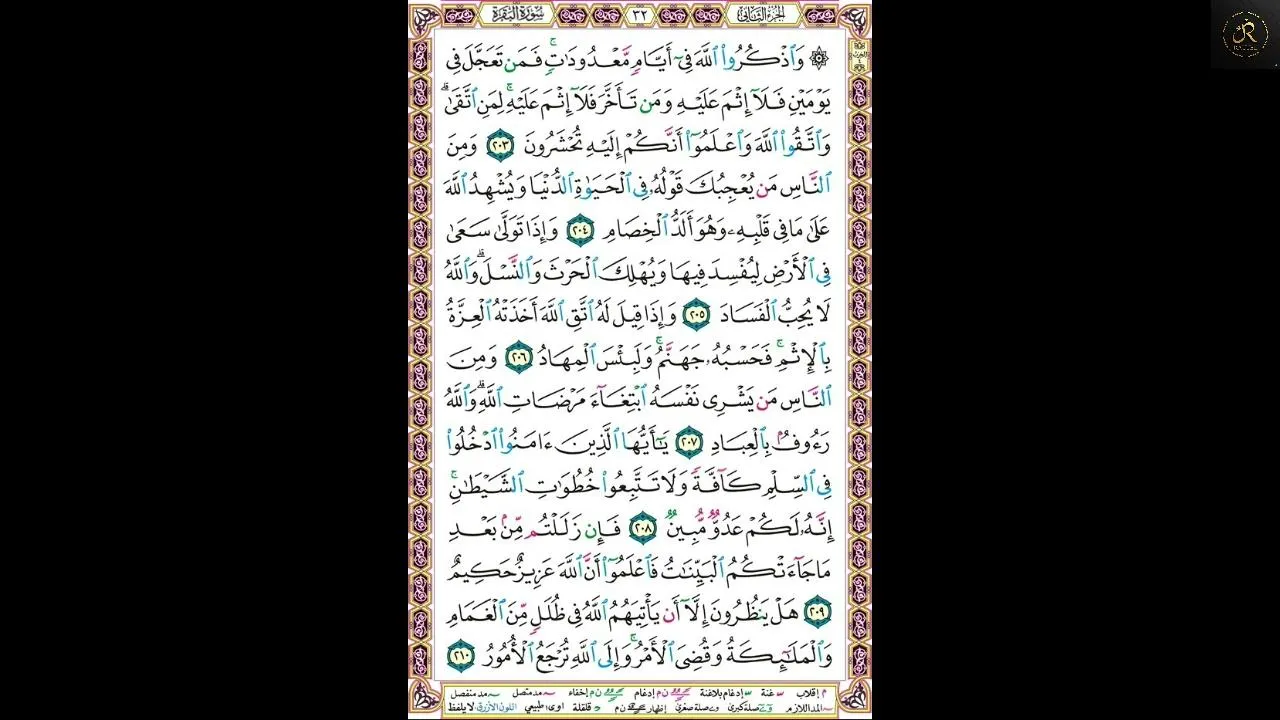 الجزء الثاني
٣٢
سورة البقرة
۞ وَٱذۡكُرُواْ ٱللَّهَ فِيٓ أَيَّامٖ مَّعۡدُودَٰتٖۚ فَمَن تَعَجَّلَ فِي
يَوۡمَيۡنِ فَلَآ إِثۡمَ عَلَيۡهِ وَمَن تَأَخَّرَ فَلَآ إِثۡمَ عَلَيۡهِۚ لِمَنِ ٱتَّقَىٰۗ
وَٱتَّقُواْ ٱللَّهَ وَٱعۡلَمُوٓاْ أَنَّكُمۡ إِلَيۡهِ تُحۡشَرُونَ ٢٠٣ وَمِنَ
ٱلنَّاسِ مَن يُعۡجِبُكَ قَوۡلُهُۥ فِي ٱلۡحَيَوٰةِ ٱلدُّنۡيَا وَيُشۡهِدُ ٱللَّهَ
عَلَىٰ مَا فِي قَلۡبِهِۦ وَهُوَ أَلَدُّ ٱلۡخِصَامِ ٢٠٤ وَإِذَا تَوَلَّىٰ سَعَىٰ
فِي ٱلۡأَرۡضِ لِيُفۡسِدَ فِيهَا وَيُهۡلِكَ ٱلۡحَرۡثَ وَٱلنَّسۡلَۚ وَٱللَّهُ
لَا يُحِبُّ ٱلۡفَسَادَ ٢٠٥ وَإِذَا قِيلَ لَهُ ٱتَّقِ ٱللَّهَ أَخَذَتۡهُ ٱلۡعِزَّةُ
بِٱلۡإِثۡمِۚ فَحَسۡبُهُۥ جَهَنَّمُۚ وَلَبِئۡسَ ٱلۡمِهَادُ ٢٠٦ وَمِنَ
ٱلنَّاسِ مَن يَشۡرِي نَفۡسَهُ ٱبۡتِغَآءَ مَرۡضَاتِ ٱللَّهِۚ وَٱللَّهُ
رَءُوفُۢ بِٱلۡعِبَادِ ٢٠٧ يَٰٓأَيُّهَا ٱلَّذِينَ ءَامَنُواْ ٱدۡخُلُواْ
فِي ٱلسِّلۡمِ كَآفَّةٗ وَلَا تَتَّبِعُواْ خُطُوَٰتِ ٱلشَّيۡطَٰنِۚ
إِنَّهُۥ لَكُمۡ عَدُوّٞ مُّبِينٞ ٢٠٨ فَإِن زَلَلۡتُم مِّنۢ بَعۡدِ
مَا جَآءَتۡكُمُ ٱلۡبَيِّنَٰتُ فَٱعۡلَمُوٓاْ أَنَّ ٱللَّهَ عَزِيزٌ حَكِيمٌ
٢٠٩ هَلۡ يَنظُرُونَ إِلَّآ أَن يَأۡتِيَهُمُ ٱللَّهُ فِي ظُلَلٖ مِّنَ ٱلۡغَمَامِ
وَٱلۡمَلَٰٓئِكَةُ وَقُضِيَ ٱلۡأَمۡرُۚ وَإِلَى ٱللَّهِ تُرۡجَعُ ٱلۡأُمُورُ ٢١٠
إقلاب غنة إدغام بلاغنة إدغام إخفاء مد متصل مد منفصل
المد اللازم صلة كبرى صلة صغرى إظهار قلقلة طبيعي اللون الأزرق لا يلفظ